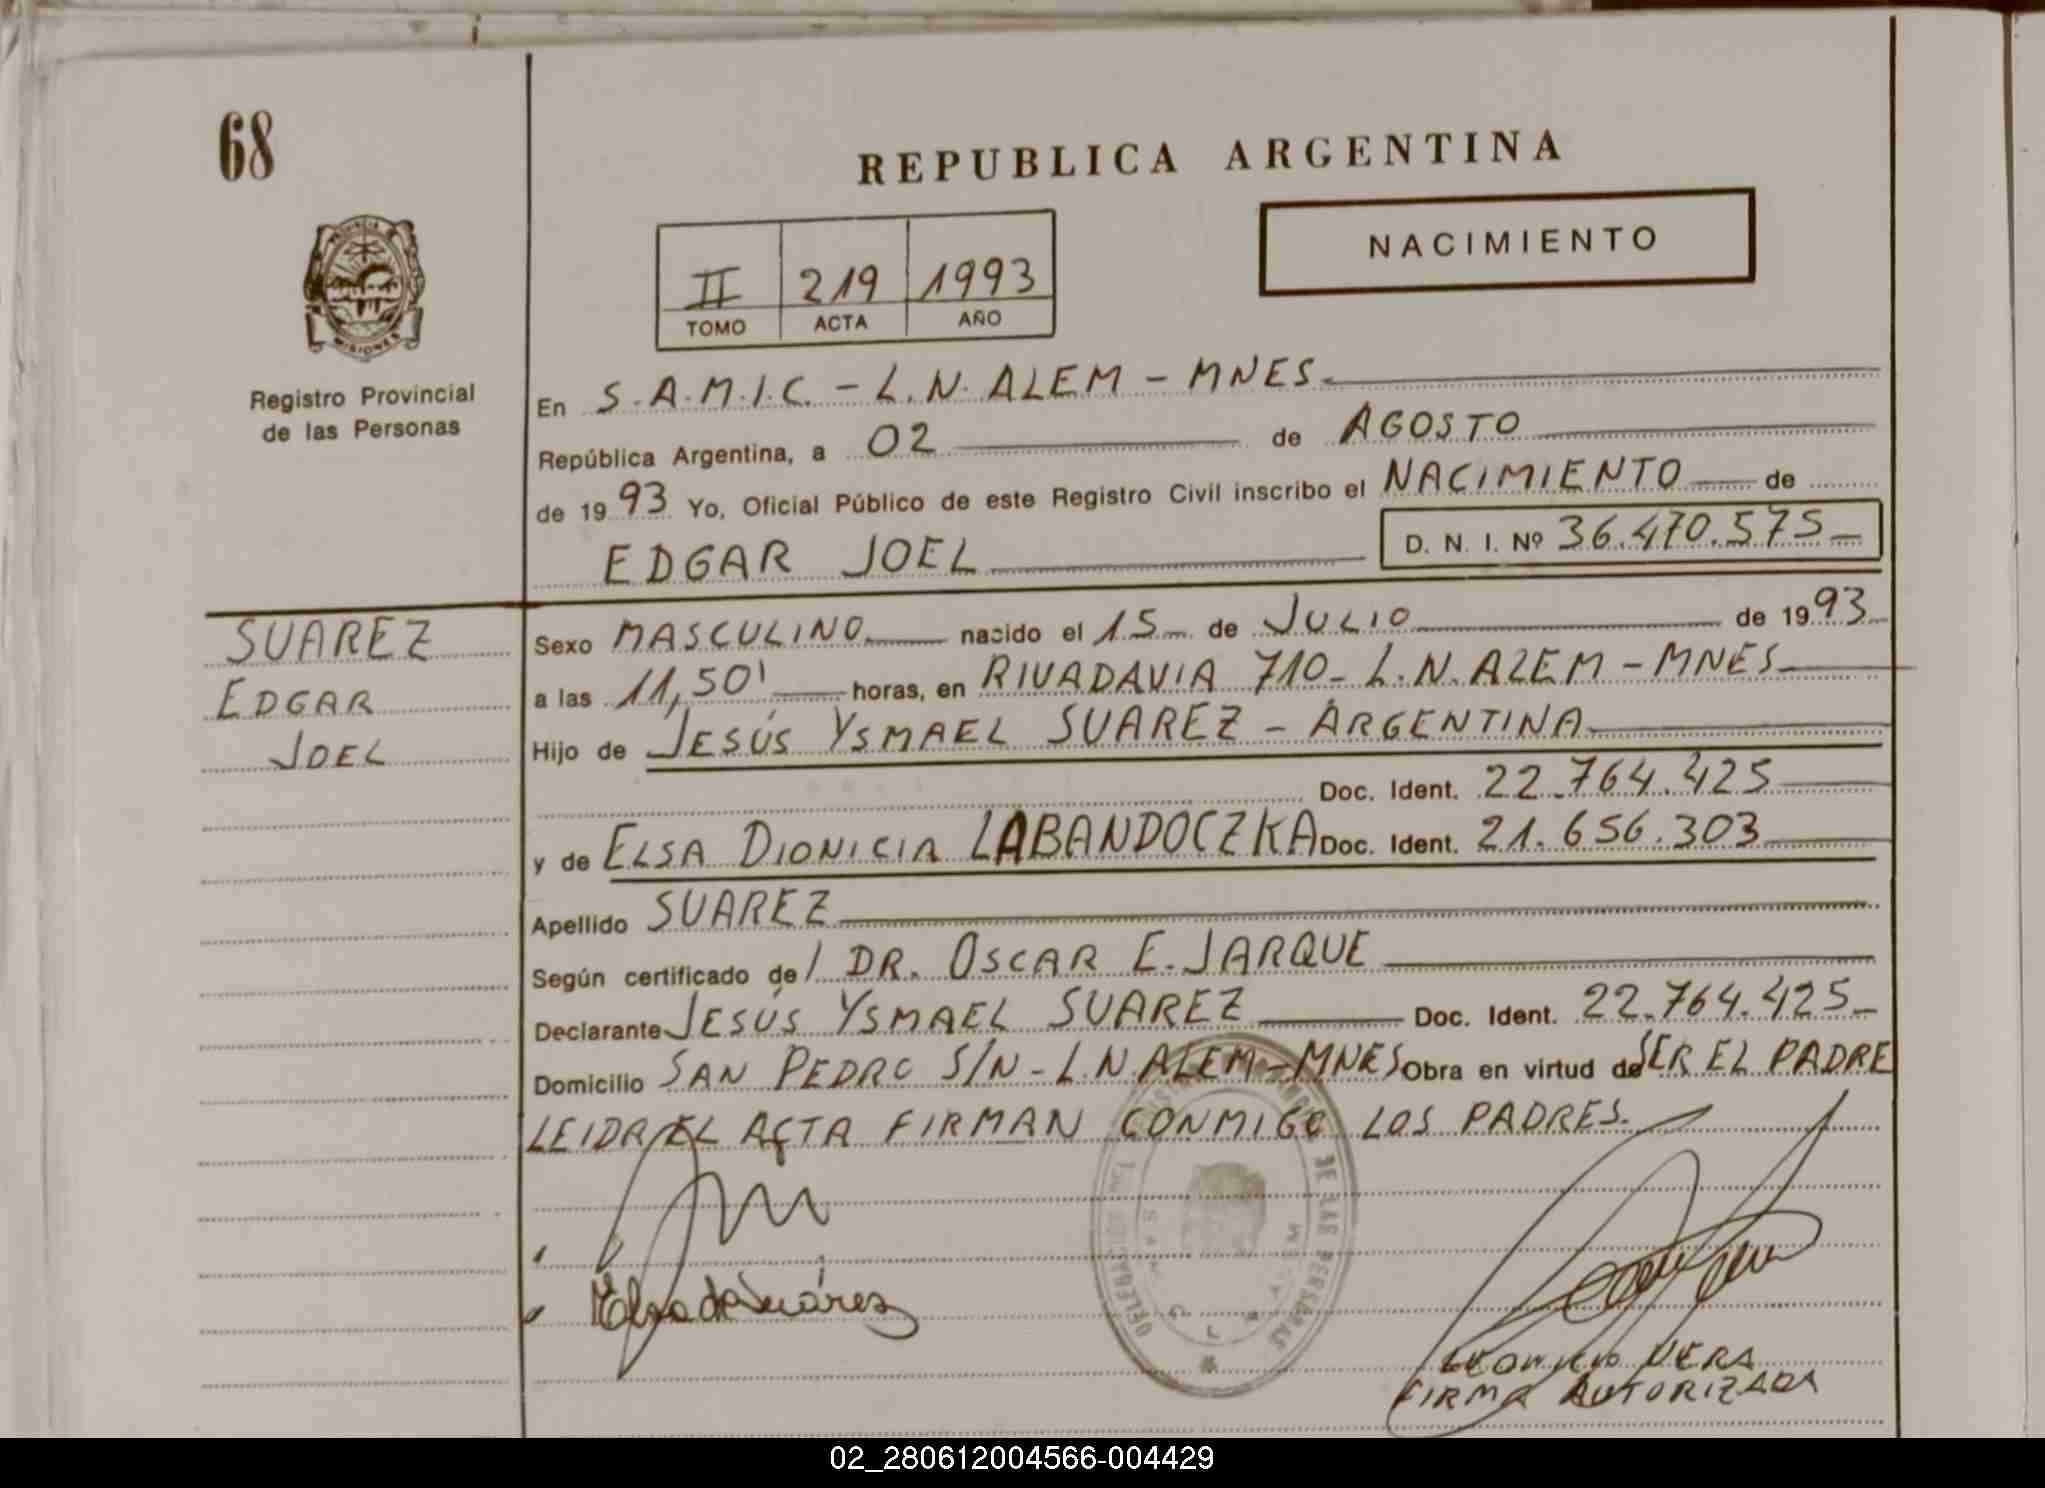 68
REPUBLICA ARGENTINA
NACIMIENTO
II 219 1993
TOMO ACTA AÑO
PROVINCIA DE
MISIONES
Registro Provincial
de las Personas
En S.A.M.I.C. - L.N. ALEM - MNES.
República Argentina, a 02 de AGOSTO
de 1993 Yo, Oficial Público de este Registro Civil inscribo el NACIMIENTO de
EDGAR JOEL D. N. I. Nº 36.470.575
SUAREZ
EDGAR
JOEL
Sexo MASCULINO nacido el 15 de JULIO de 1993
a las 11,50' horas, en RIVADAVIA 710 - L.N. ALEM - MNES
Hijo de JESÚS YSMAEL SUAREZ - ARGENTINA
Doc. Ident. 22.764.425
y de ELSA DIONICIA LABANDOCZKA Doc. Ident. 21.656.303
Apellido SUAREZ
Según certificado de / DR. OSCAR E. JARQUE
Declarante JESÚS YSMAEL SUAREZ Doc. Ident. 22.764.425
Domicilio SAN PEDRO S/N - L.N. ALEM - MNES Obra en virtud de SER EL PADRE
LEIDA EL ACTA FIRMAN CONMIGO LOS PADRES.
DE LAS PERSONAS
Elsa de Suárez
LEONICIO VERA
FIRMA AUTORIZADA
02_280612004566-004429